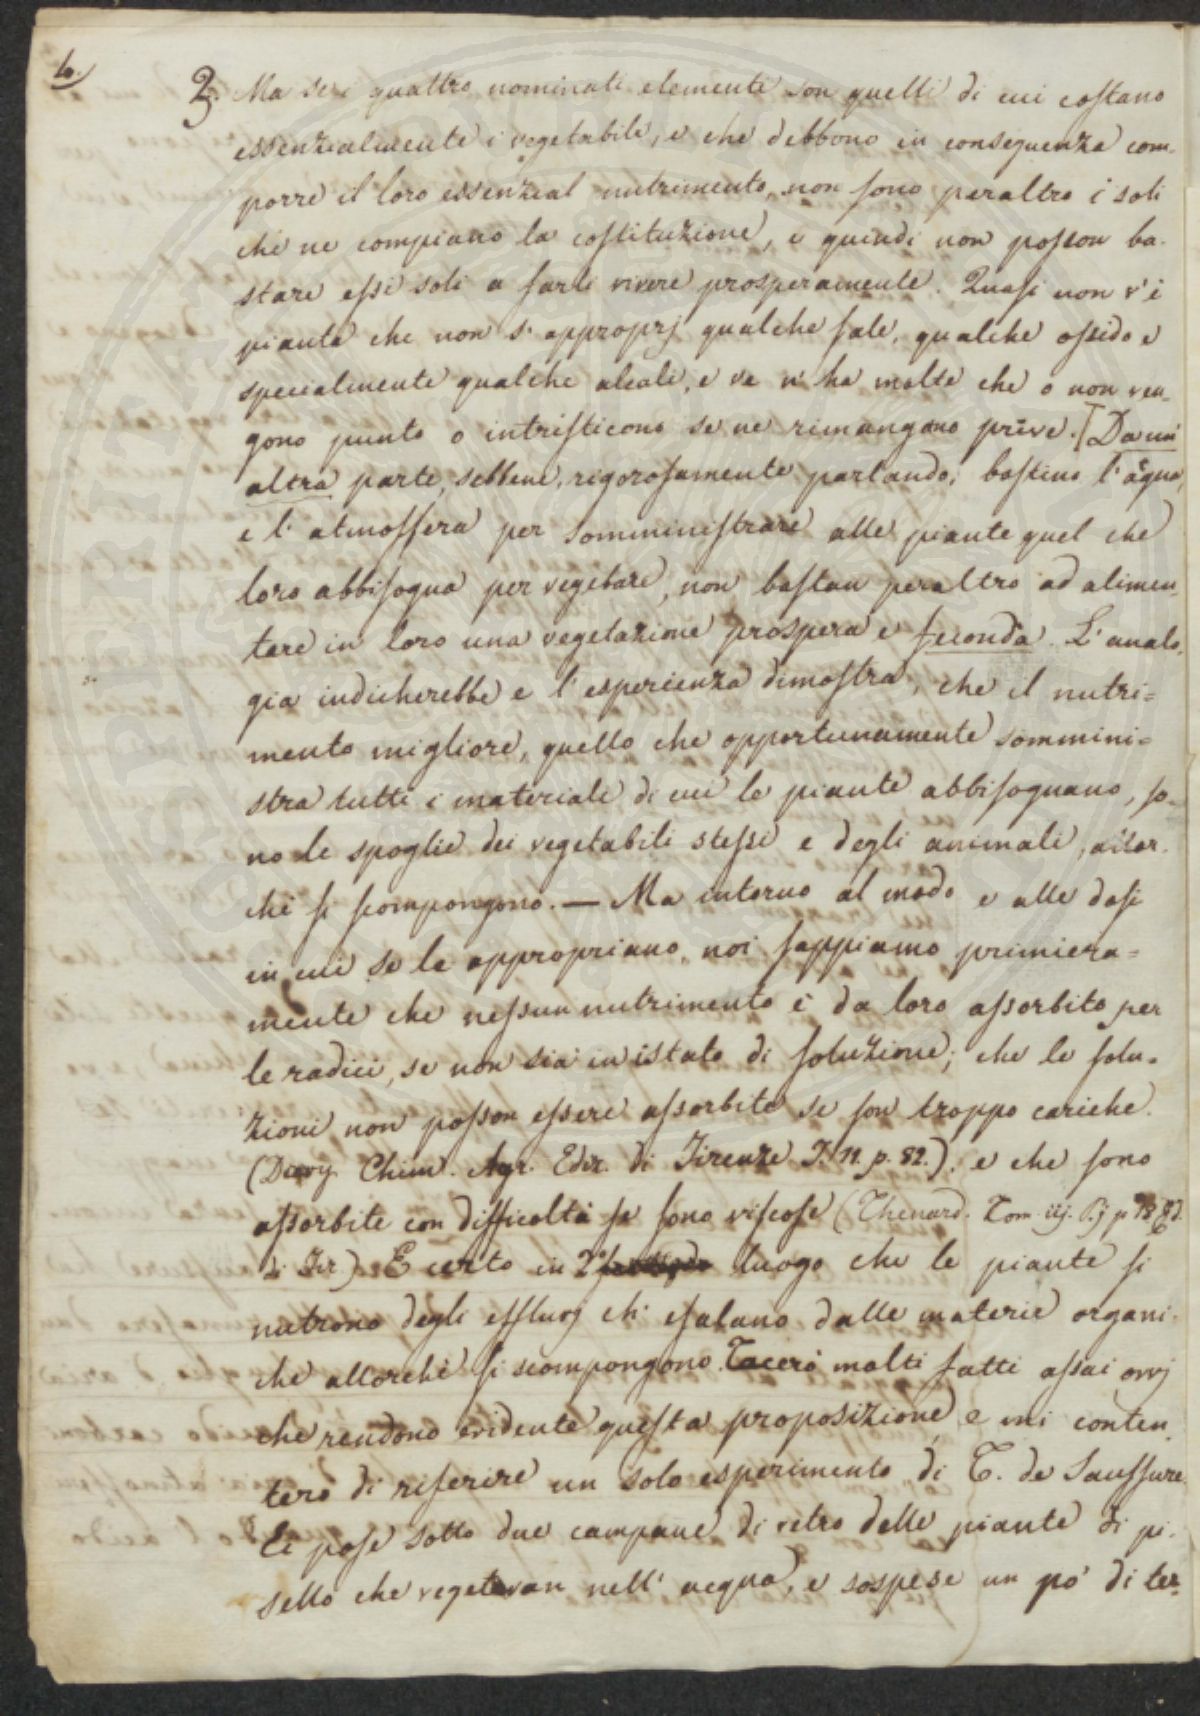 4.
3. Ma se i quattro nominati elementi son quelli di cui costano
essenzialmente i vegetabili, e che debbono in conseguenza com-
porre il loro essenzial nutrimento, non sono peraltro i soli
che ne compiano la costituzione, e quindi non posson ba-
stare essi soli a farli vivere prosperamente. Quasi non v'è
pianta che non s'approprj qualche sale, qualche ossido e
specialmente qualche alcali, e ve n'ha molte che o non ven-
gono punto o intristiscono se ne rimangano prive. [Da un'
altra parte, sebbene, rigorosamente parlando, bastino l'aqua,
e l'atmosfera per somministrare alle piante quel che
loro abbisogna per vegetare, non bastan peraltro ad alimen-
tare in loro una vegetazione prospera e feconda. L'analo-
gia indicherebbe e l'esperienza dimostra, che il nutri=
mento migliore, quello che opportunamente sommini=
stra tutti i materiali di cui le piante abbisognano, so-
no le spoglie dei vegetabili stessi e degli animali, allor-
chè si scompongono. — Ma intorno al modo e alle dosi
in cui se le appropriano, noi sappiamo primiera=
mente che nessun nutrimento è da loro assorbito per
le radici, se non sia in istato di soluzione; che le solu=
zioni non posson essere assorbite se son troppo cariche
(Davy Chim. Agr. Ediz. di Firenze T. II. p. 82.), e che sono
assorbite con difficoltà se sono viscose (Thenard. Tom. iij. P. j p 78 Ed.
di Fir.) È certo in 2° luogo che le piante si
nutrono degli effluvj ch' esalano dalle materie organi-
che allorchè si scompongono. Tacerò molti fatti assai ovvj
che rendono evidente questa proposizione, e mi conten-
terò di riferire un solo esperimento di T. de Saussure.
Ei pose sotto due campane di vetro delle piante di pi-
sello che vegetavan nell'acqua, e sospese un pò di ter-